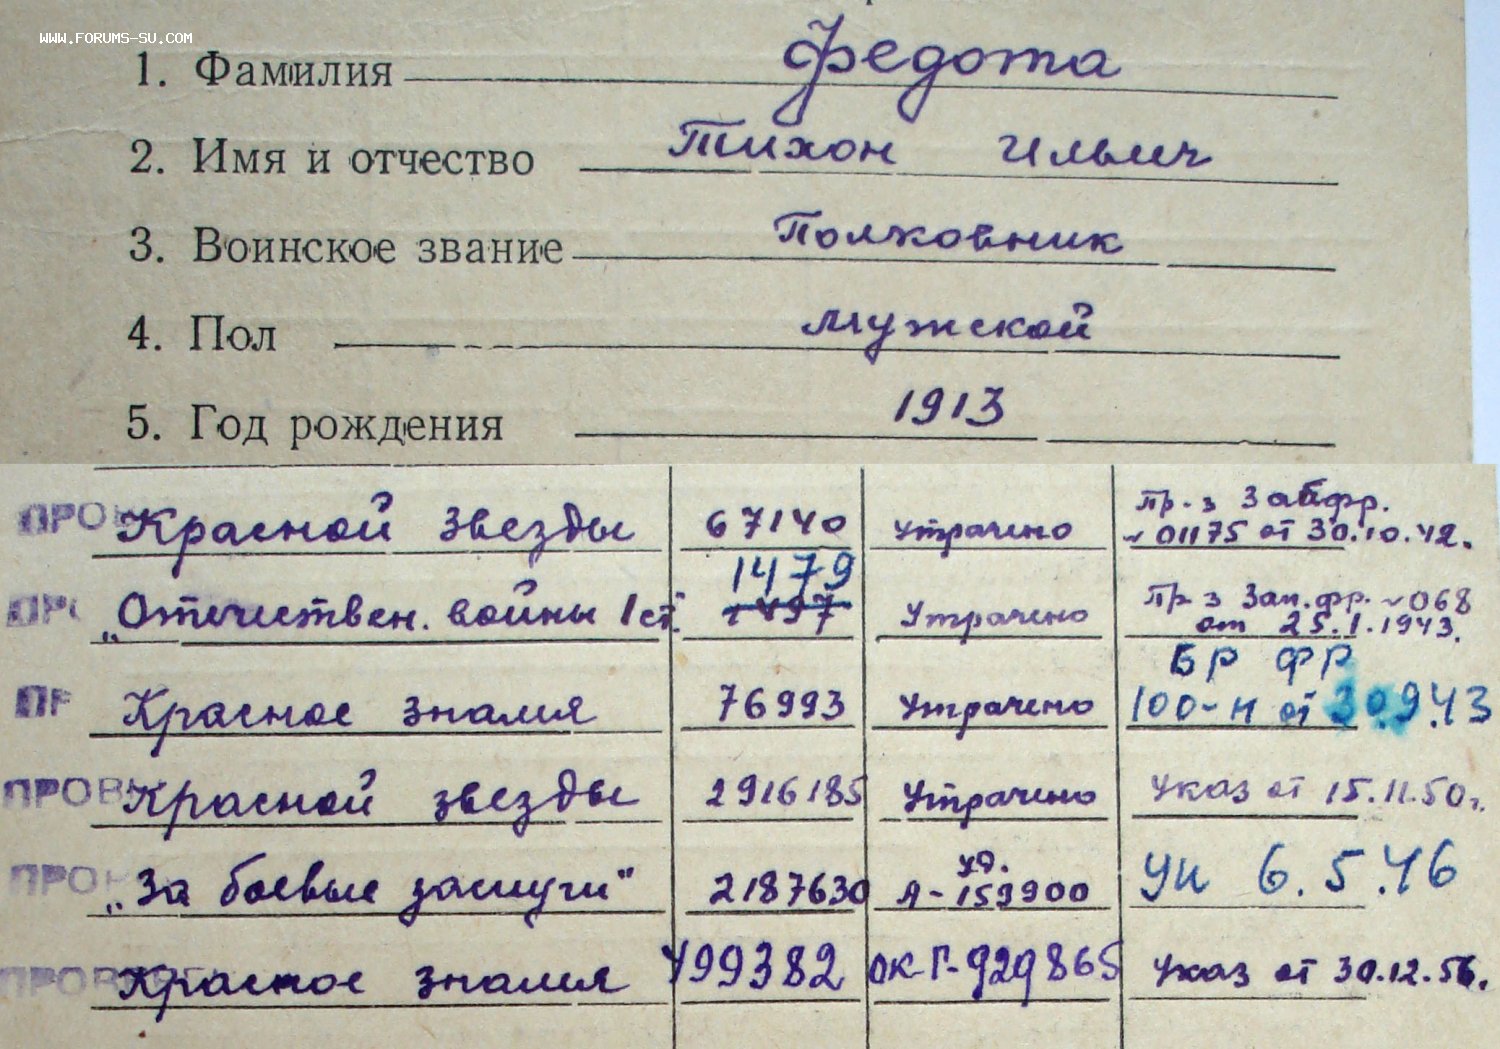 WWW.FORUMS-SU.COM
1. Фамилия Федота
2. Имя и отчество Тихон Ильич
3. Воинское звание Полковник
4. Пол мужской
5. Год рождения 1913
Красной звезды 67140 утрачено Пр-з Забфр.
№01175 от 30.10.42.
1479
„Отечествен. войны 1 ст." Утрачено Пр з Зап.фр. №068
от 25.1.1943.
БР ФР
Красное знамя 76993 Утрачено 100-н от 30.9.43
ПРОВ Красной звезды 2916185 Утрачено Указ от 15.11.50г.
уд.
„За боевые заслуги" 2187630 А-159900 Ук 6.5.46
ПРОВ Красное знамя 499382 ОК-Г-929865 Указ от 30.12.56.